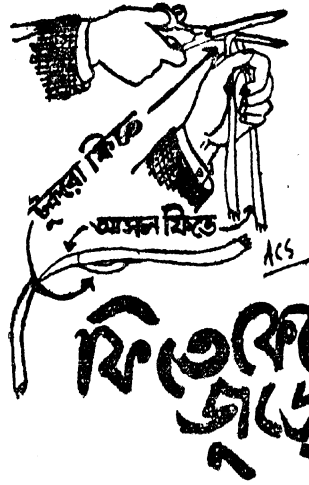 টুকরো ফিতে
আসল ফিতে
ACS
ফিতেকে
জুড়ে